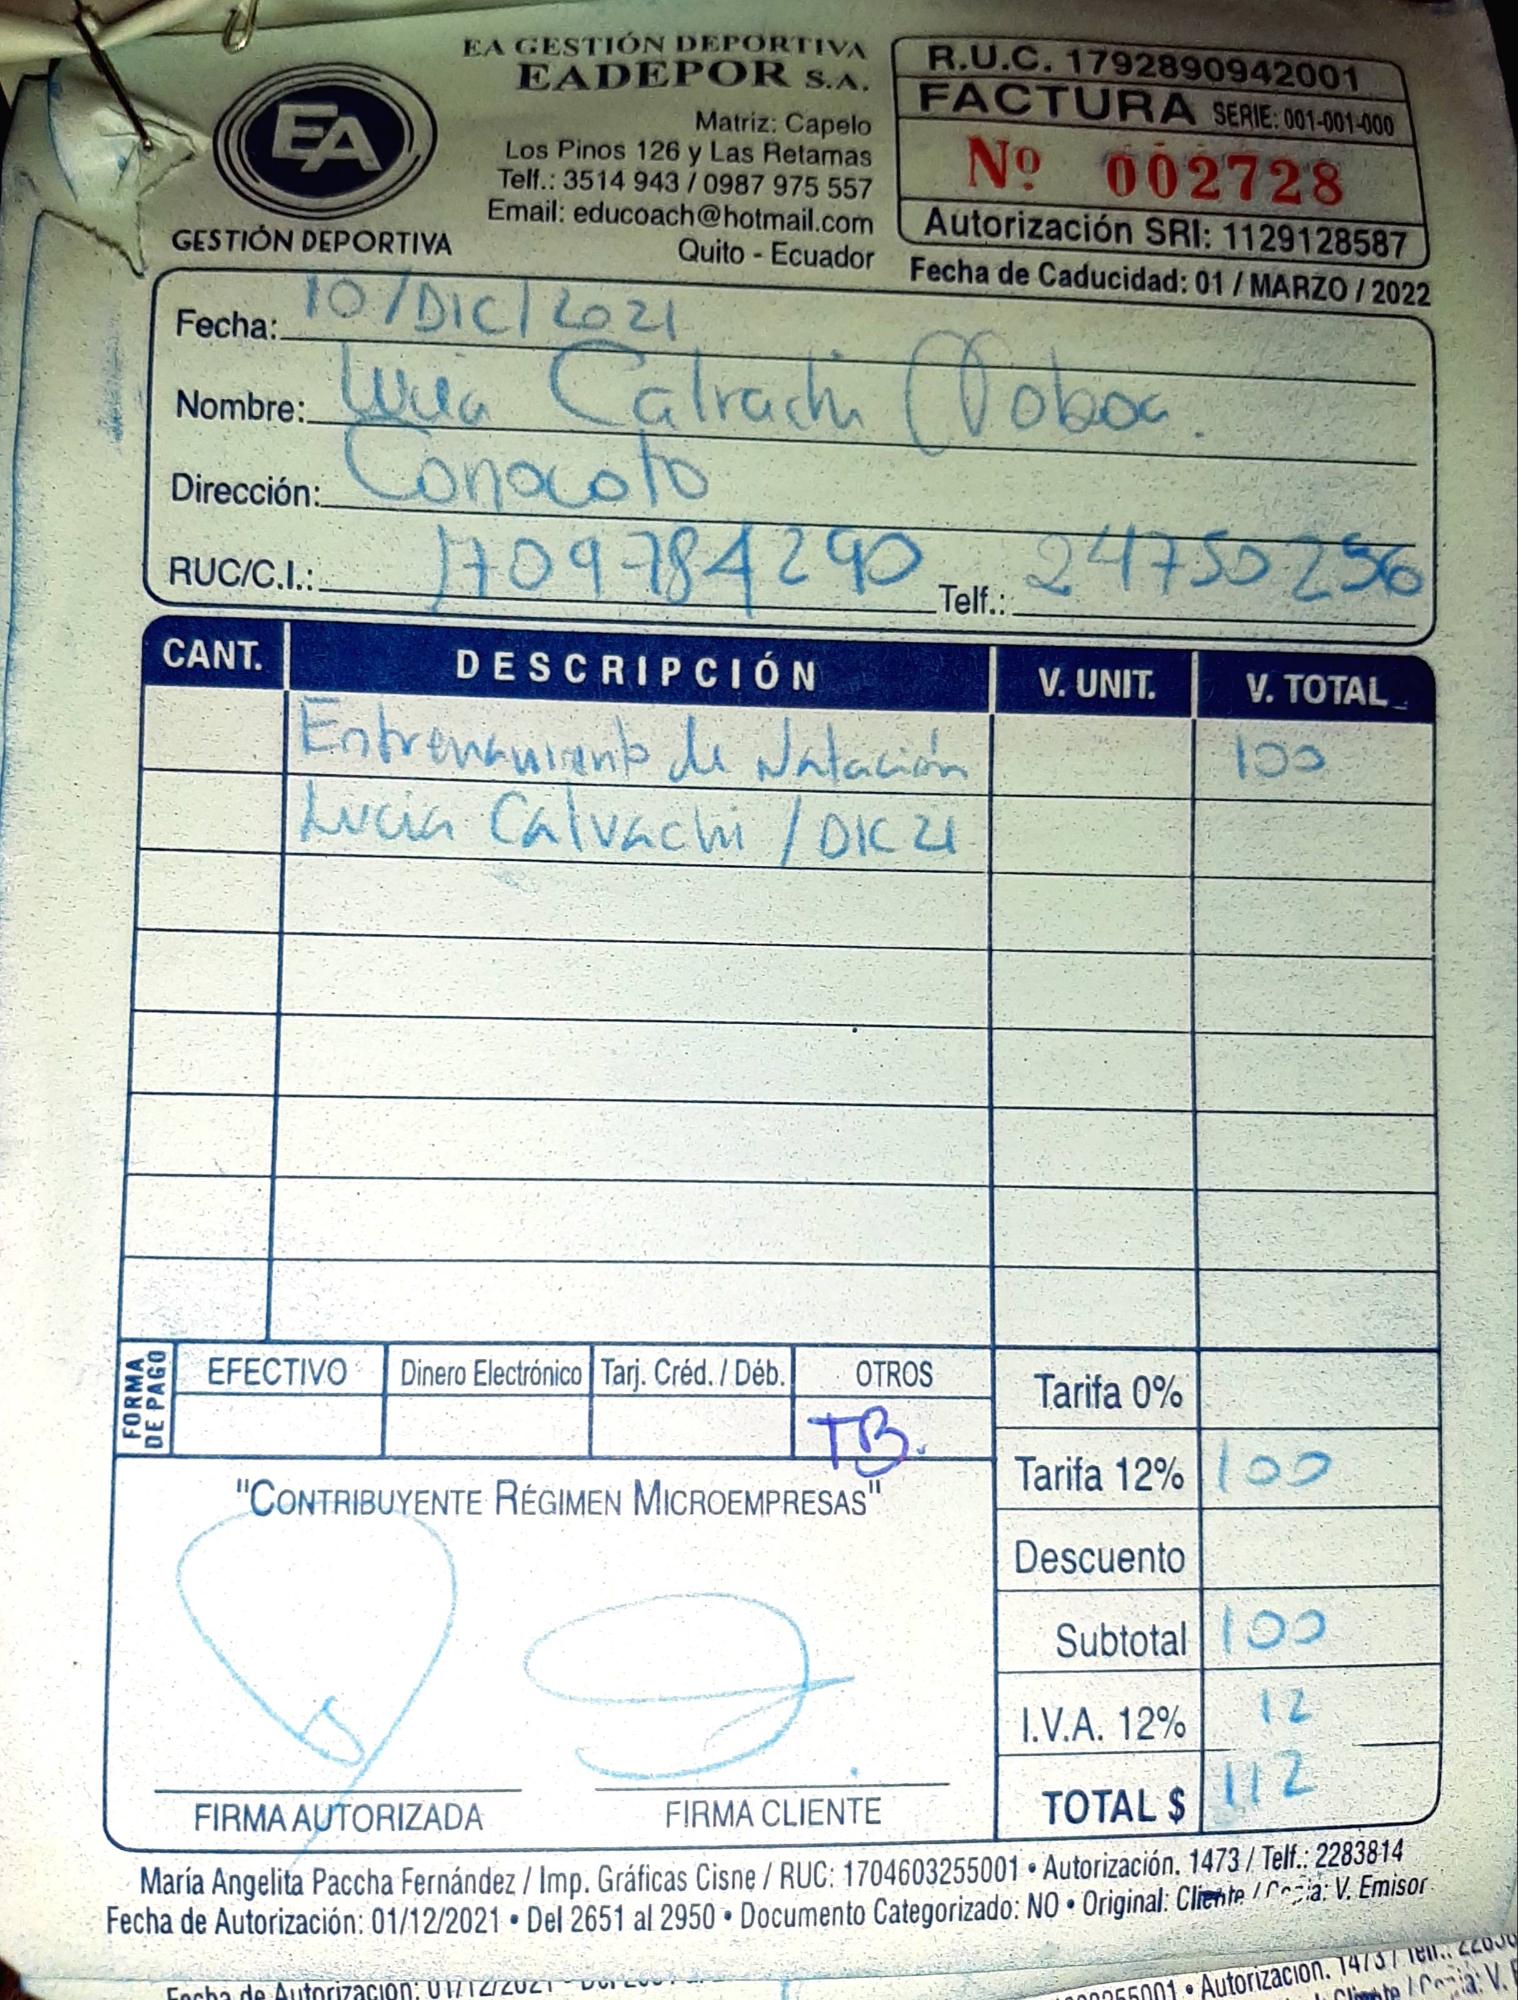 EA GESTIÓN DEPORTIVA
EADEPOR S.A.
EA
GESTIÓN DEPORTIVA
Matriz: Capelo
Los Pinos 126 y Las Retamas
Telf.: 3514 943 / 0987 975 557
Email: educoach@hotmail.com
Quito - Ecuador
R.U.C. 1792890942001
FACTURA SERIE: 001-001-000
Nº 002728
Autorización SRI: 1129128587
Fecha de Caducidad: 01 / MARZO / 2022
Fecha: 10/DIC/2021
Nombre: Lucia Calvachi
Dirección: Conocoto
RUC/C.I.: 1709784290 Telf.: 24750256
CANT. DESCRIPCIÓN V. UNIT. V. TOTAL
Entrenamiento de Natación 100
Lucia Calvachi / DIC 21
FORMA DE PAGO
EFECTIVO Dinero Electrónico Tarj. Créd. / Déb. OTROS
TB.
Tarifa 0%
Tarifa 12% 100
Descuento
Subtotal 100
I.V.A. 12% 12
TOTAL $ 112
"CONTRIBUYENTE RÉGIMEN MICROEMPRESAS"
FIRMA AUTORIZADA FIRMA CLIENTE
María Angelita Paccha Fernández / Imp. Gráficas Cisne / RUC: 1704603255001 • Autorización. 1473 / Telf.: 2283814
Fecha de Autorización: 01/12/2021 • Del 2651 al 2950 • Documento Categorizado: NO • Original: Cliente / Copia: V. Emisor
Fecha de Autorización: 01/12/2021
• Autorización. 1473 / Telf.:
Cliente / Copia: V.